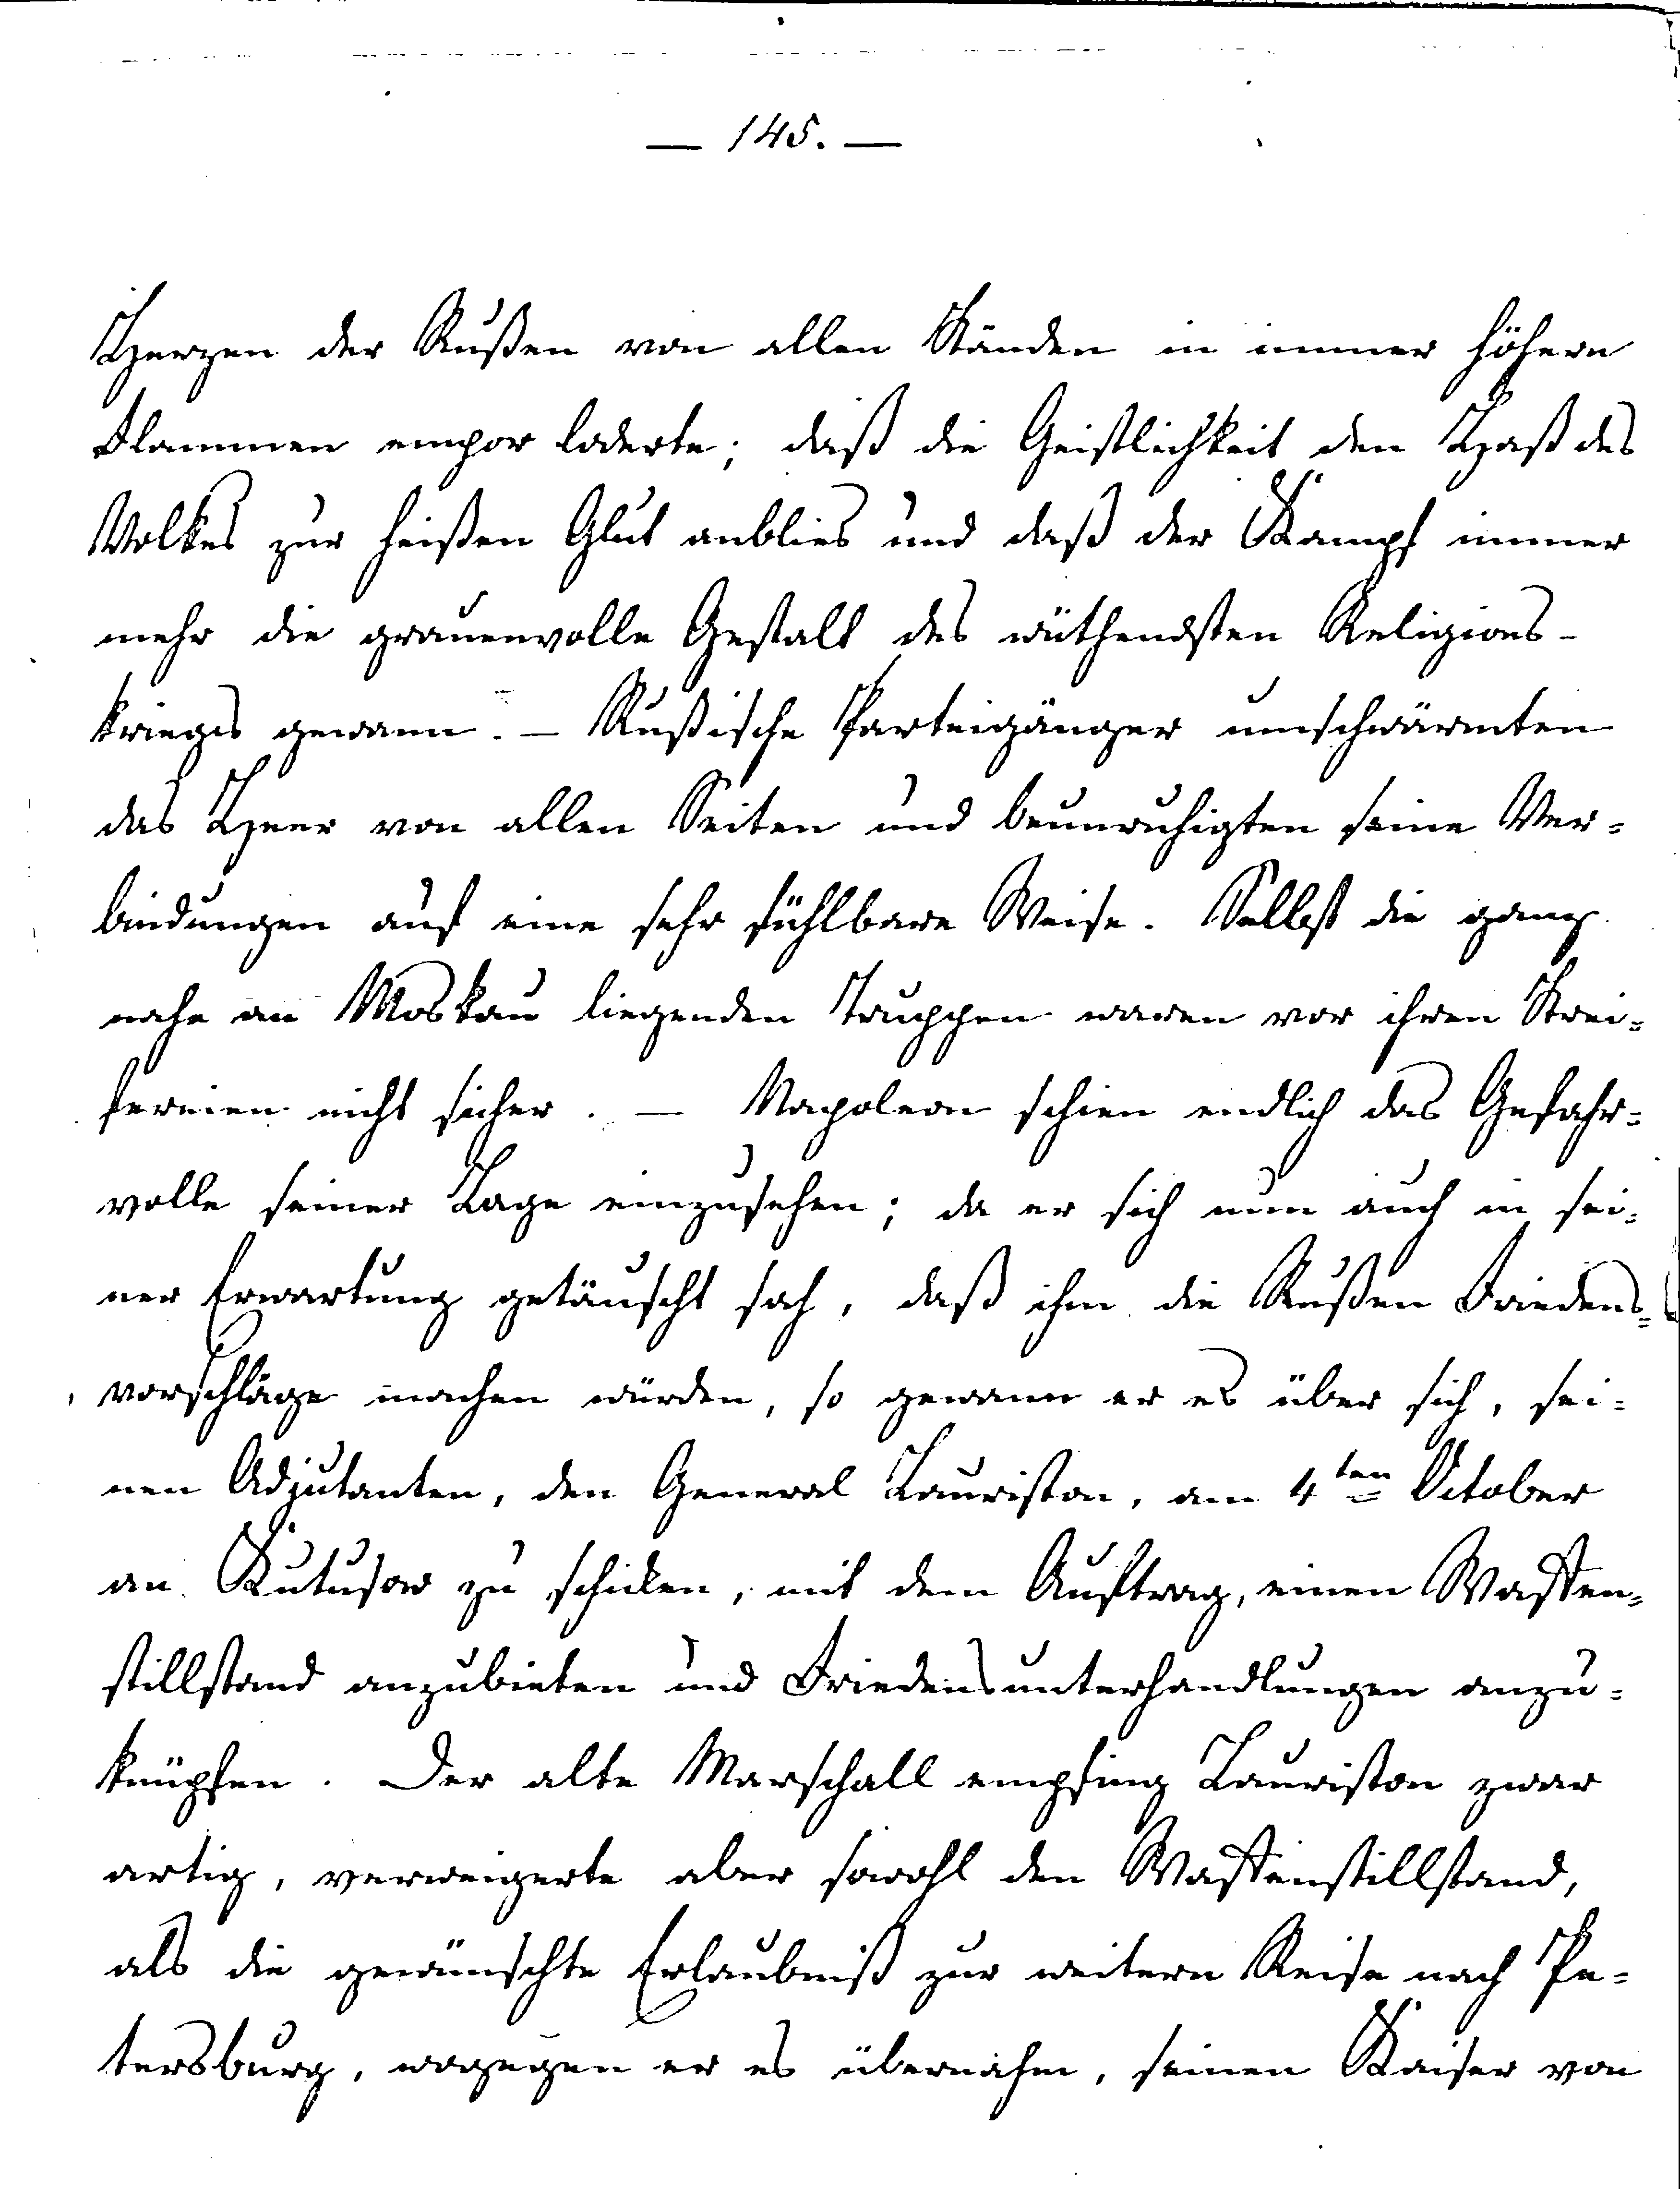 — 145. —
Herzen der Rußen von allen Ständen in immer höhern
Flammen empor loderte; daß die Geistlichkeit den Haß des
Volkes zur heißen Glut anblies und daß der Kampf immer
mehr die grauenvolle Gestalt des wüthendsten Religions-
krieges gewann. — Rußische Parteigänger umschwärmten
das Heer von allen Seiten und beunruhigten seine Ver-
bindungen auf eine sehr fühlbare Weise. Selbst die ganz
nahe an Moskau liegenden Truppen waren vor ihren Strei-
fereien nicht sicher. — Napoleon schien endlich das Gefahr-
volle seiner Lage einzusehen; da er sich nun auch in sei-
ner Erwartung getäuscht sah, daß ihm die Rußen Friedens-
vorschläge machen würden, so gewann er es über sich, sei-
nen Adjutanten, den General Lauriston, am 4ten October
an Kutusow zu schicken, mit dem Auftrag, einen Waffen-
stillstand anzubieten und Friedensunterhandlungen anzu-
knüpfen. Der alte Marschall empfing Lauriston zwar
artig, verweigerte aber sowohl den Waffenstillstand,
als die gewünschte Erlaubniß zur weitern Reise nach Pe-
tersburg, wogegen er es übernahm, seinen Kaiser von